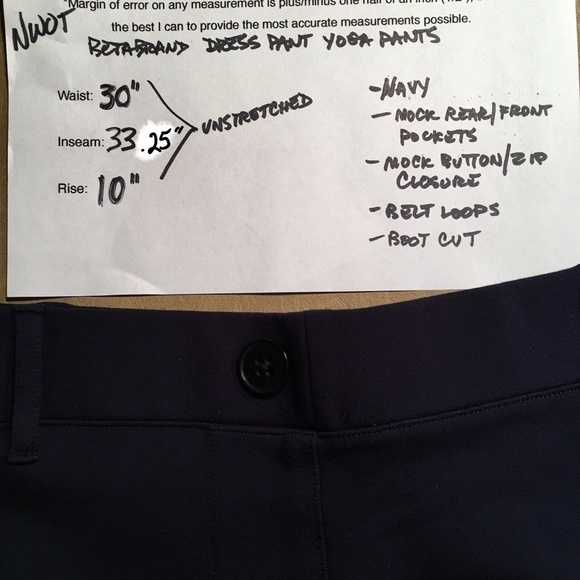 *Margin of error on any measurement is plus/minus one half of an inch (1/2"),
the best I can to provide the most accurate measurements possible.
NWOT
BETABRAND DRESS PANT YOGA PANTS
Waist: 30"
Inseam: 33.25"
Rise: 10"
UNSTRETCHED
- NAVY
- MOCK REAR/FRONT
POCKETS
- MOCK BUTTON/ZIP
CLOSURE
- BELT LOOPS
- BOOT CUT